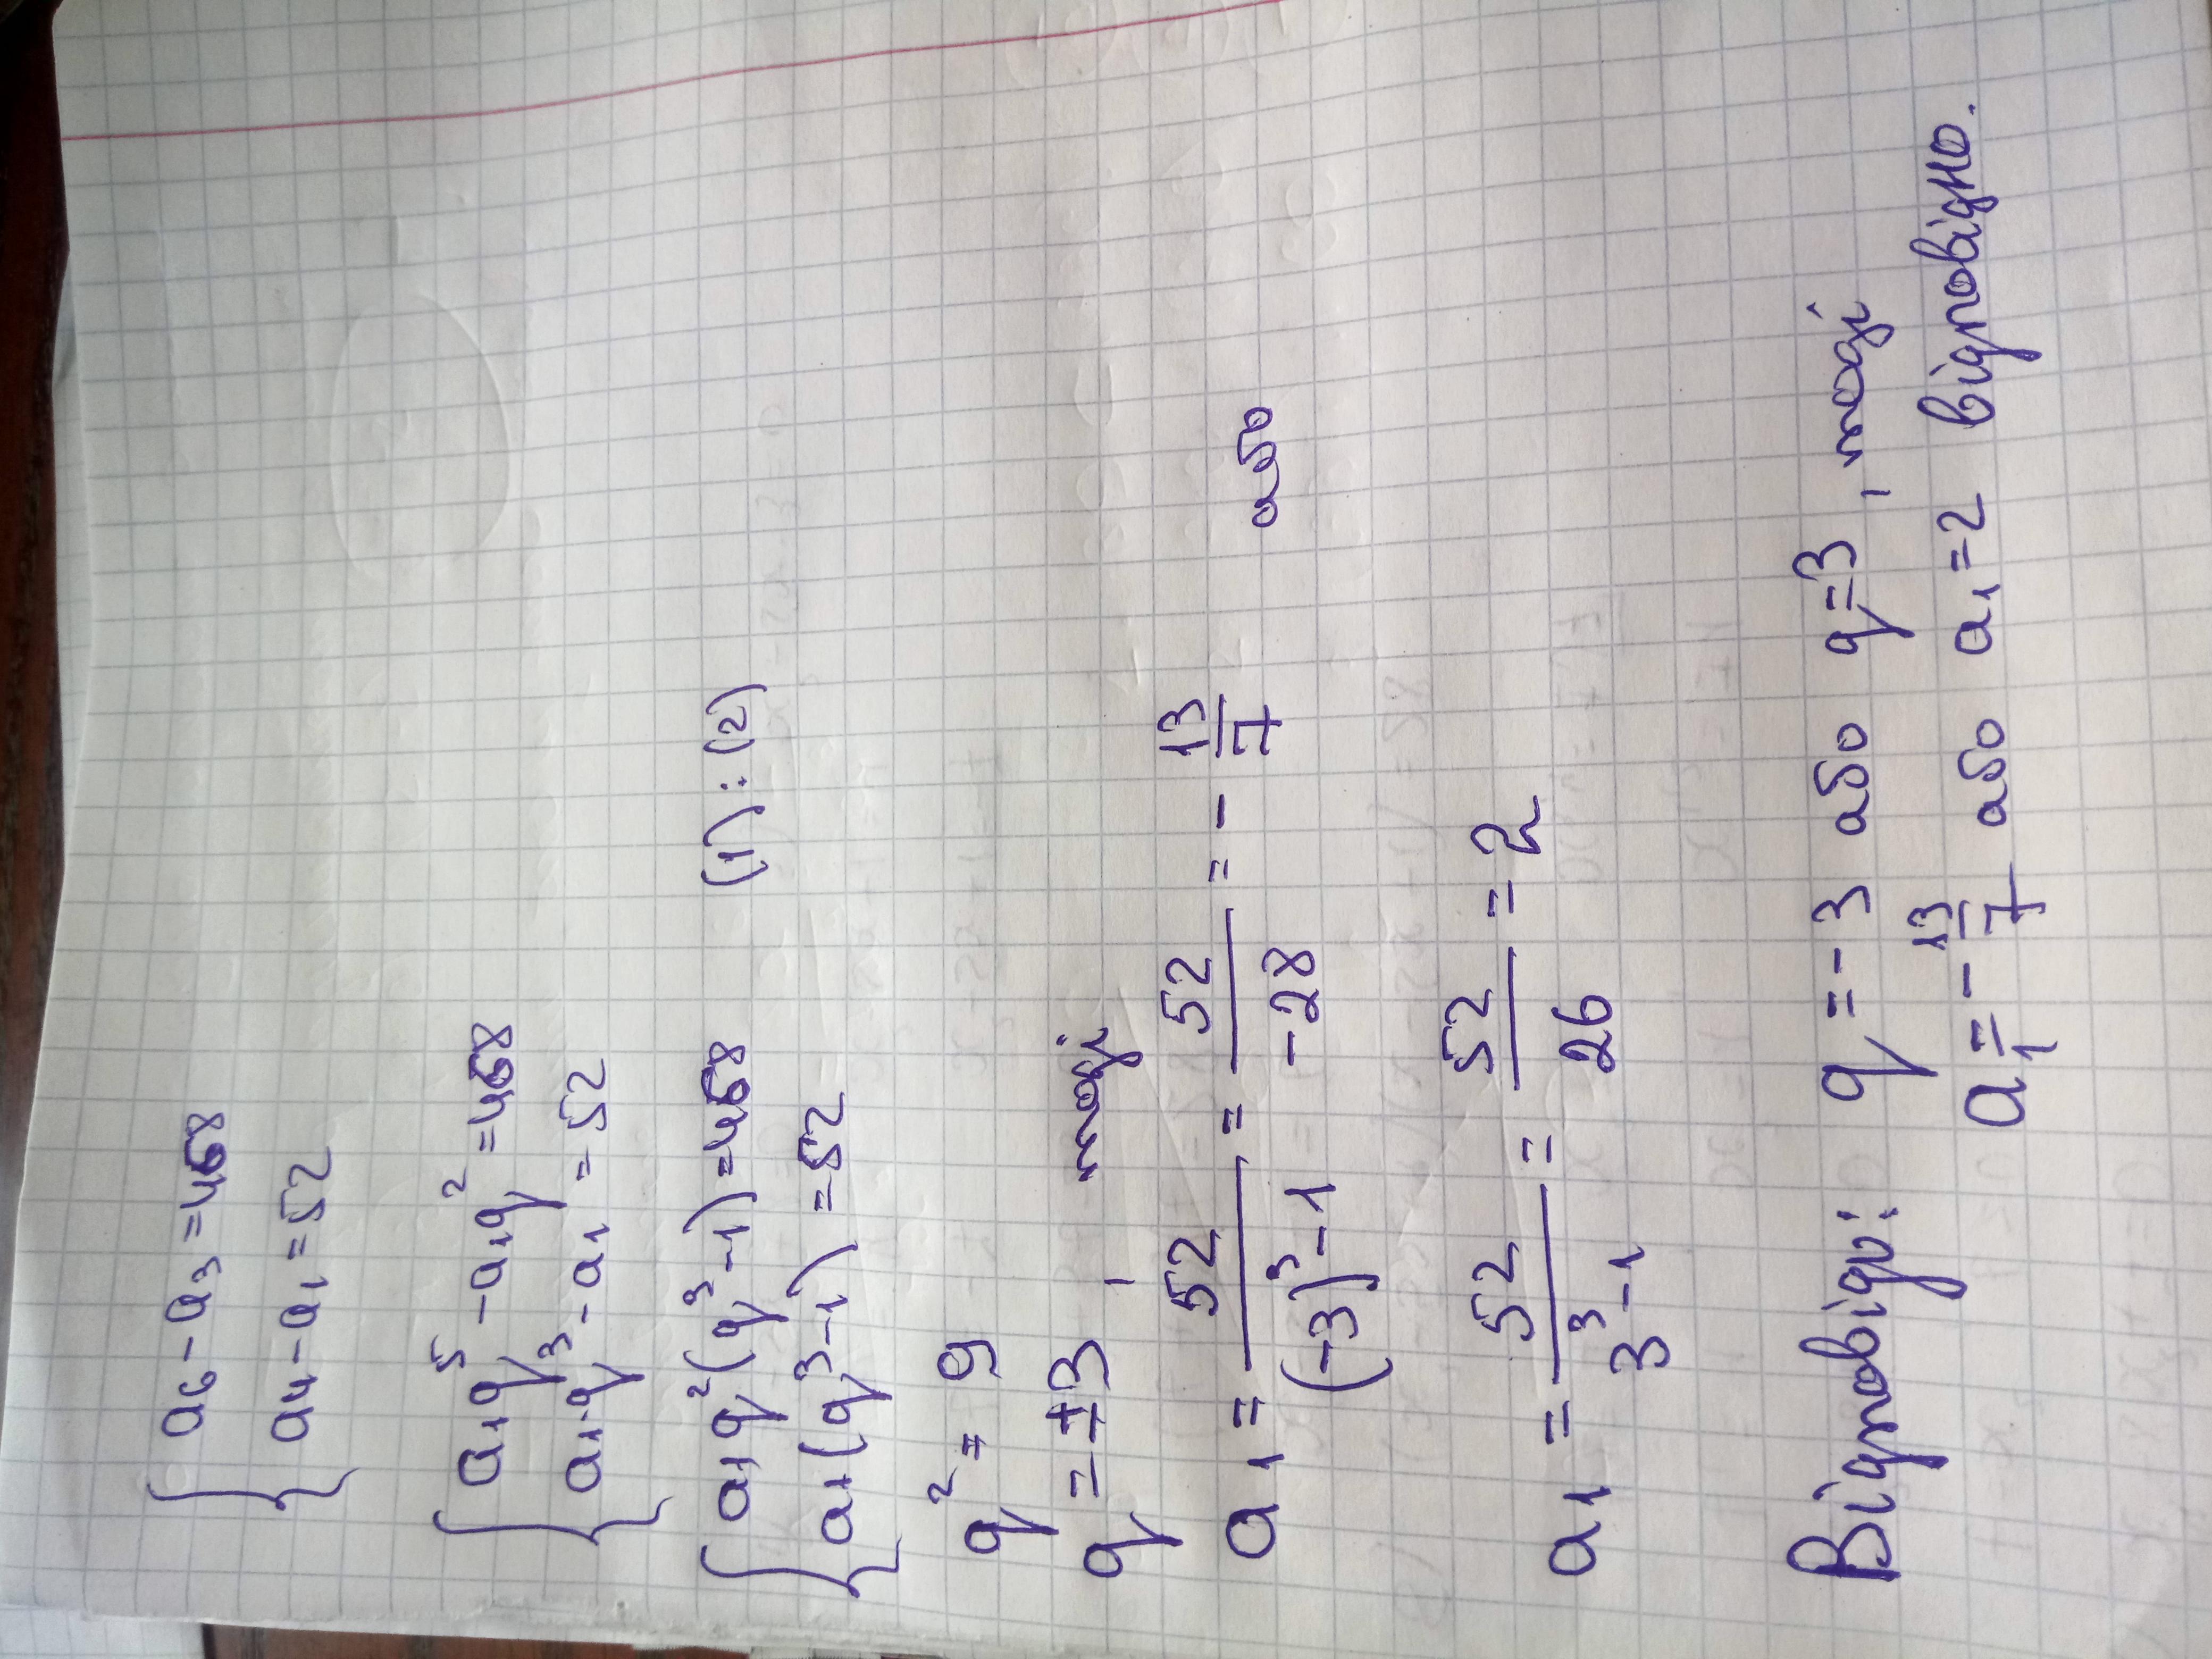 { a₆ - a₃ = 468
a₄ - a₁ = 52
{ a₁q⁵ - a₁q² = 468
a₁q³ - a₁ = 52
{ a₁q²(q³-1) = 468 (1):(2)
a₁(q³-1) = 52
q² = 9
q = ±3, тоді
a₁ = 52/((-3)³-1) = 52/-28 = - 13/7 або
a₁ = 52/(3³-1) = 52/26 = 2
Відповідь: q = -3 або q=3, тоді
a₁ = - 13/7 або a₁=2 відповідно.